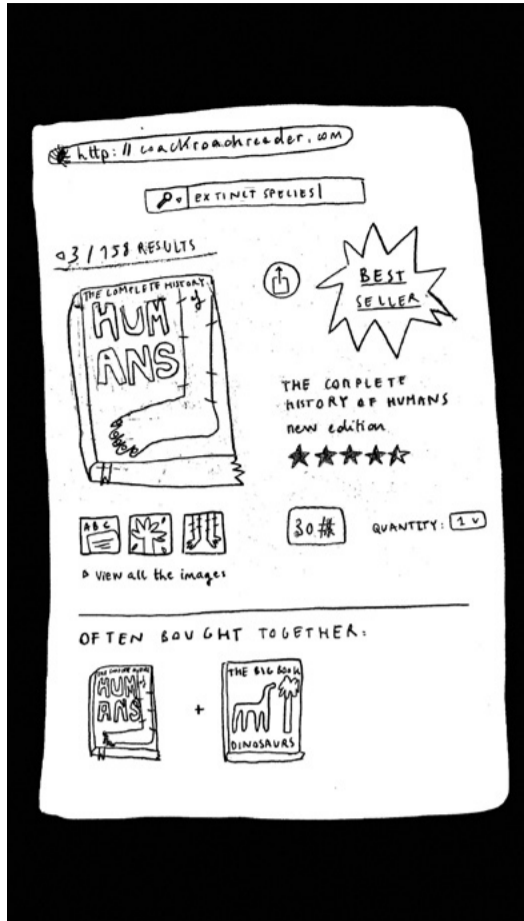 http://cockroachreader.com
EXTINCT SPECIES
3/158 RESULTS
BEST
SELLER
THE COMPLETE HISTORY of
HUM
ANS
THE COMPLETE
HISTORY OF HUMANS
new edition
ABC
30 #
QUANTITY: 1 v
View all the images
OFTEN BOUGHT TOGETHER:
HUM
ANS
+
THE BIG BOOK
DINOSAURS